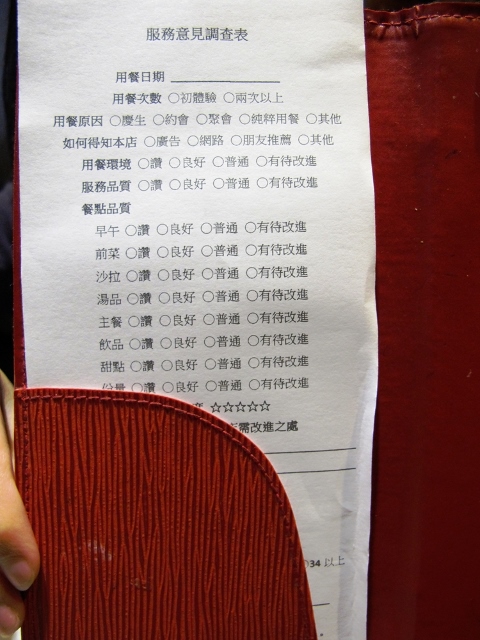 服務意見調查表
用餐日期
用餐次數 ○初體驗 ○兩次以上
用餐原因 ○慶生 ○約會 ○聚會 ○純粹用餐 ○其他
如何得知本店 ○廣告 ○網路 ○朋友推薦 ○其他
用餐環境 ○讚 ○良好 ○普通 ○有待改進
服務品質 ○讚 ○良好 ○普通 ○有待改進
餐點品質
早午 ○讚 ○良好 ○普通 ○有待改進
前菜 ○讚 ○良好 ○普通 ○有待改進
沙拉 ○讚 ○良好 ○普通 ○有待改進
湯品 ○讚 ○良好 ○普通 ○有待改進
主餐 ○讚 ○良好 ○普通 ○有待改進
飲品 ○讚 ○良好 ○普通 ○有待改進
甜點 ○讚 ○良好 ○普通 ○有待改進
份量 ○讚 ○良好 ○普通 ○有待改進
☆☆☆☆☆
需改進之處
34 以上